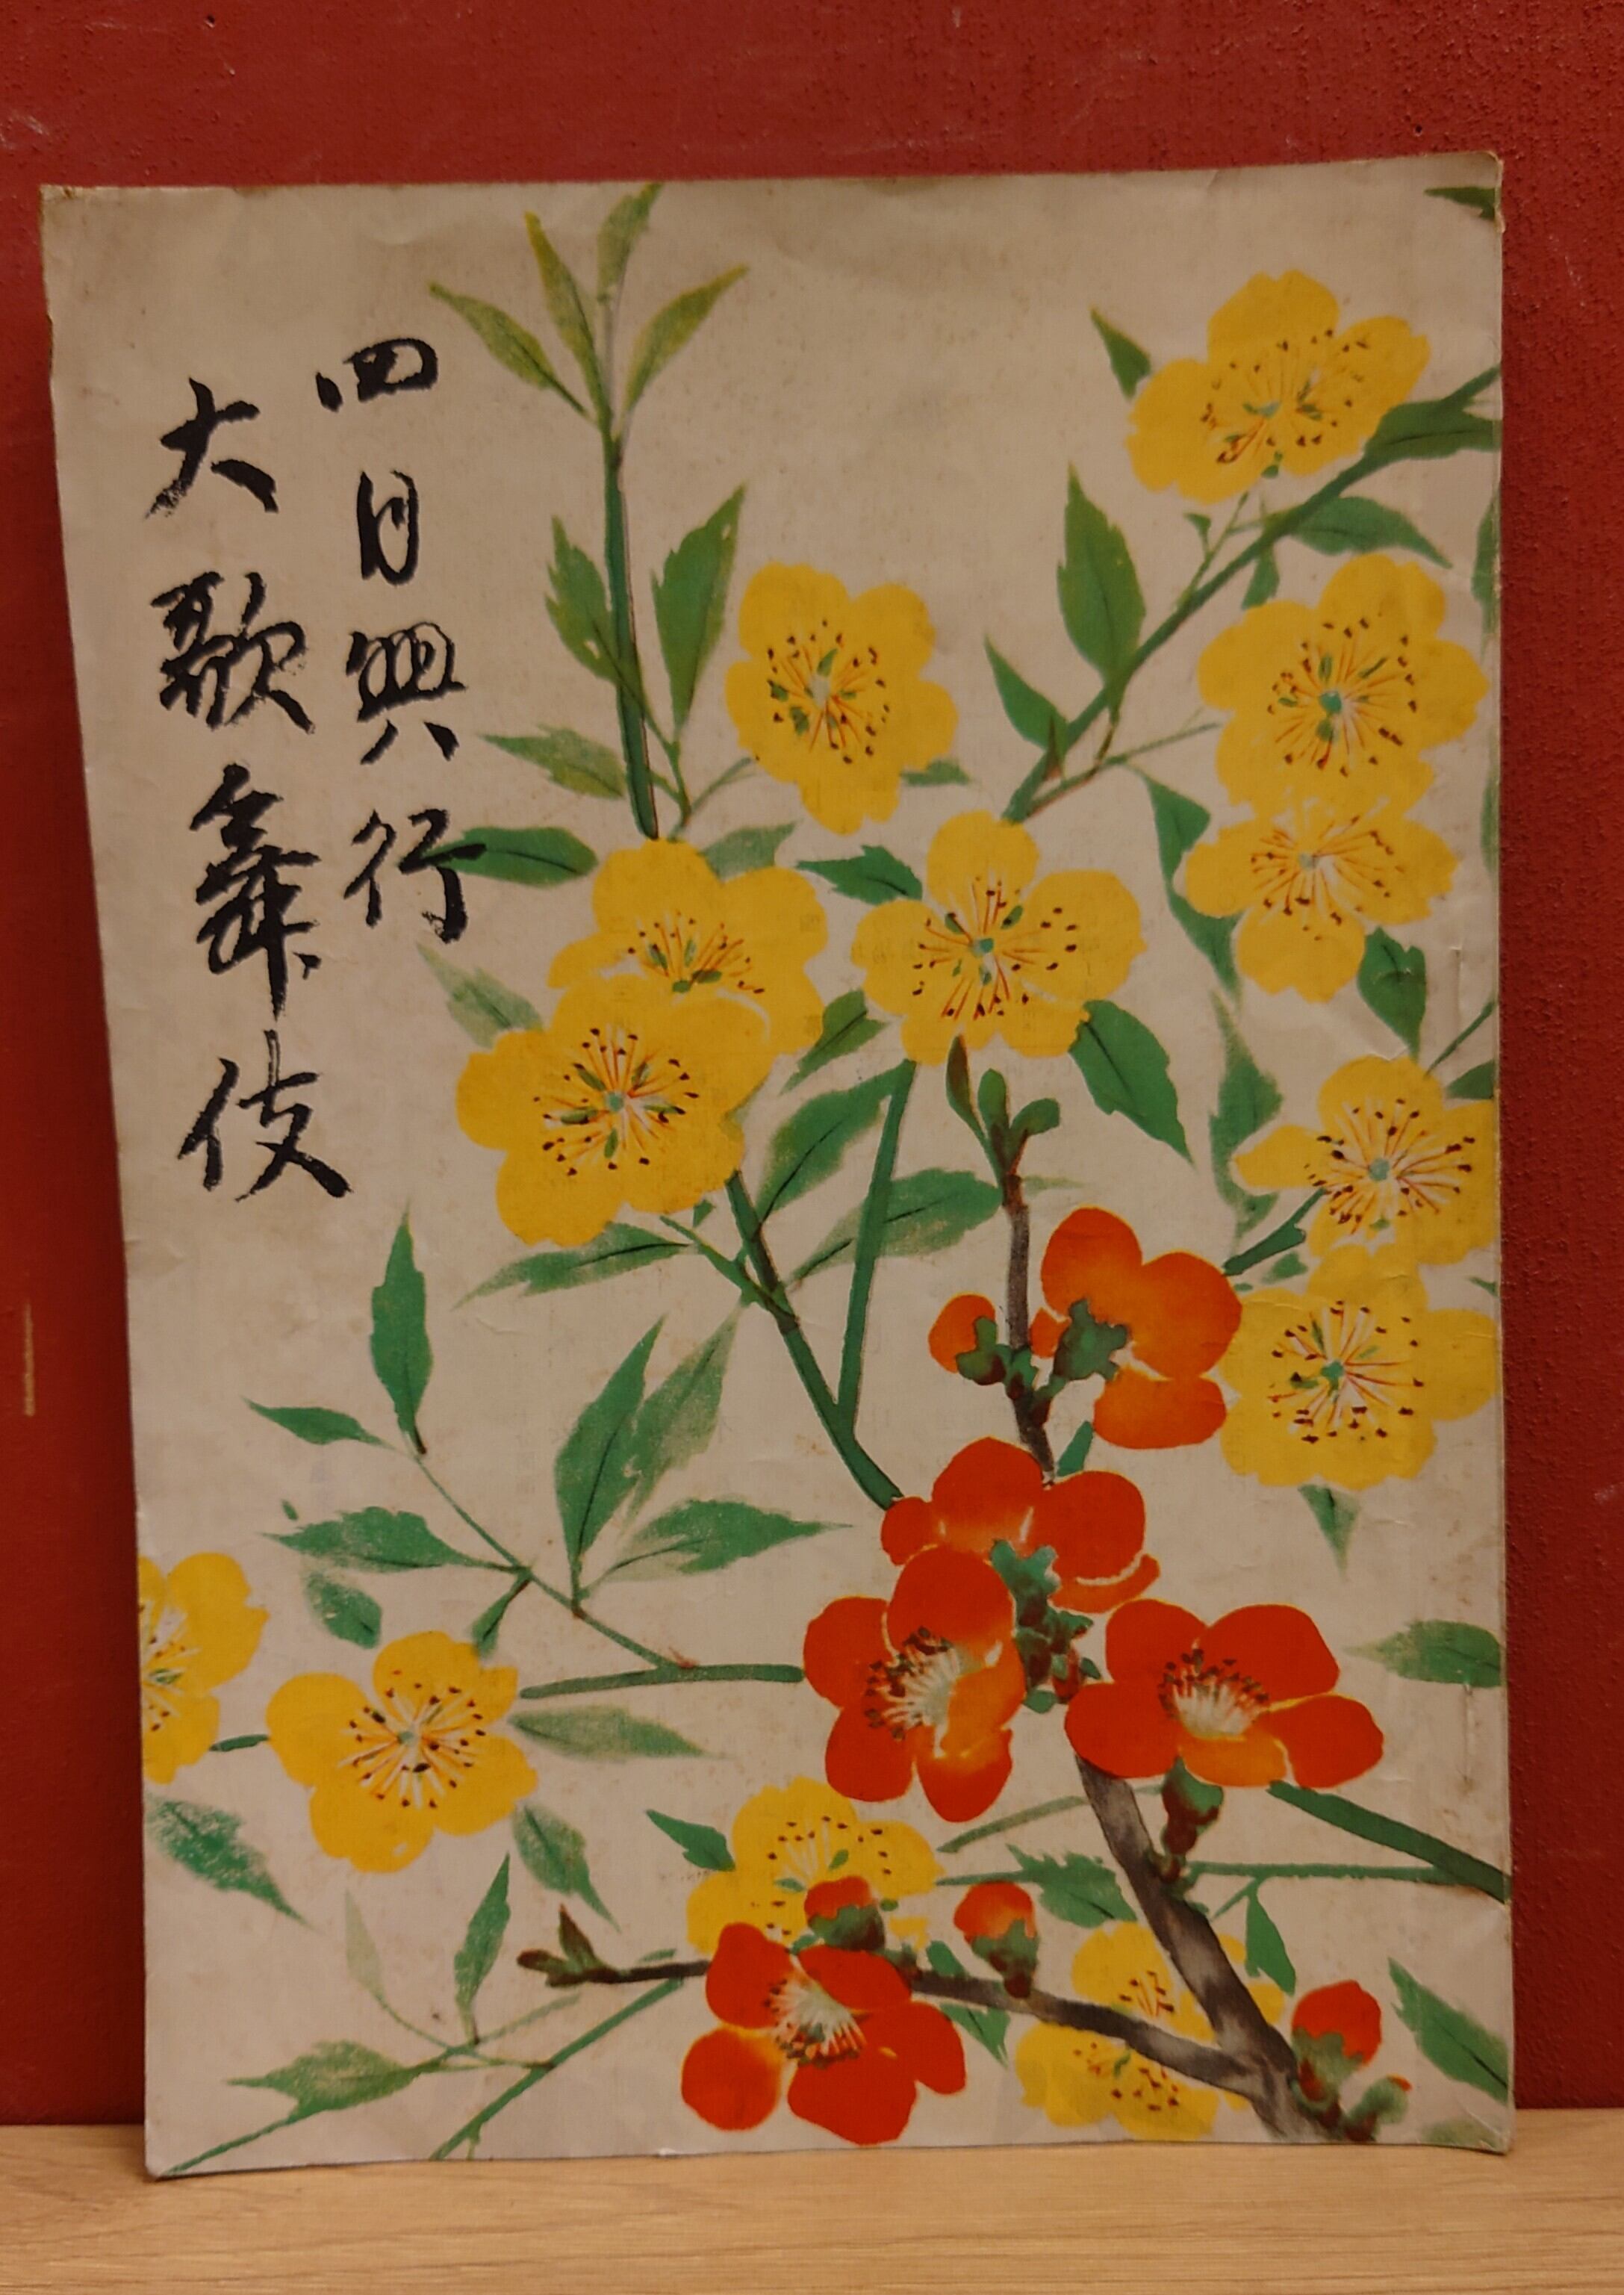 四月興行
大歌舞伎